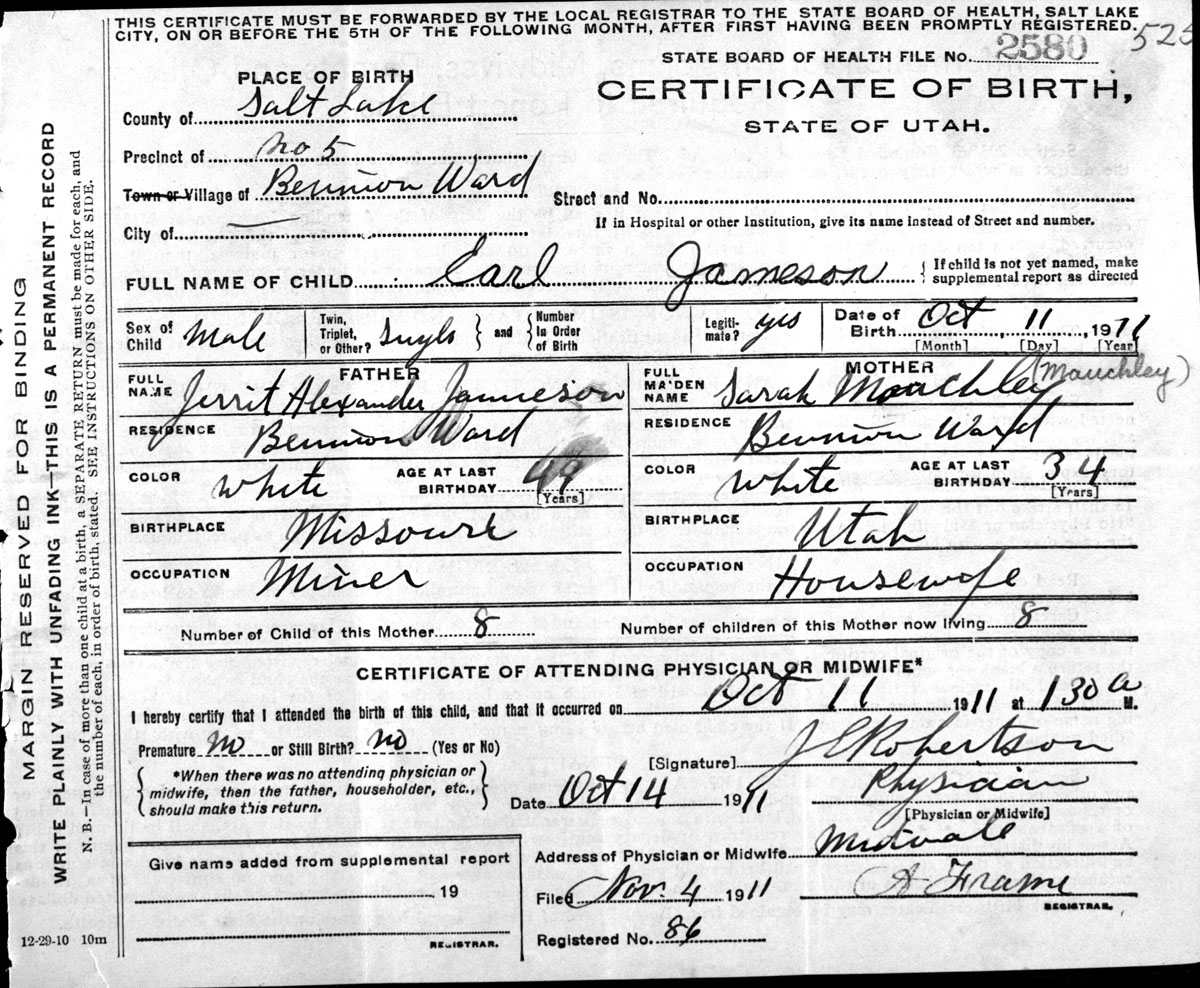 THIS CERTIFICATE MUST BE FORWARDED BY THE LOCAL REGISTRAR TO THE STATE BOARD OF HEALTH, SALT LAKE
CITY, ON OR BEFORE THE 5TH OF THE FOLLOWING MONTH, AFTER FIRST HAVING BEEN PROMPTLY REGISTERED.
525
STATE BOARD OF HEALTH FILE No. 2580
PLACE OF BIRTH
CERTIFICATE OF BIRTH,
STATE OF UTAH.
County of Salt Lake
Precinct of No 5
Town or Village of Bennion Ward
Street and No.
City of
If in Hospital or other Institution, give its name instead of Street and number.
FULL NAME OF CHILD Earl Jameson { If child is not yet named, make
supplemental report as directed
Sex of Child Male
Twin, Triplet, or Other? Singls } and { Number In Order of Birth
Legiti-mate? yes
Date of Birth Oct 11, 1911
[Month] [Day] [Year]
FATHER
FULL NAME Jerrit Alexander Jameson
MOTHER
FULL MAIDEN NAME Sarah Moachley (Mauchley)
RESIDENCE Bennion Ward
RESIDENCE Bennion Ward
COLOR White AGE AT LAST BIRTHDAY 49 [Years]
COLOR White AGE AT LAST BIRTHDAY 34 [Years]
BIRTHPLACE Missouri
BIRTHPLACE Utah
OCCUPATION Miner
OCCUPATION Housewife
Number of Child of this Mother 8
Number of children of this Mother now living 8
CERTIFICATE OF ATTENDING PHYSICIAN OR MIDWIFE*
I hereby certify that I attended the birth of this child, and that it occurred on Oct 11 1911 at 130 a M.
Premature no or Still Birth? no (Yes or No)
[Signature] J E Robertson
{ *When there was no attending physician or
midwife, then the father, householder, etc.,
should make this return. }
Date Oct 14 1911
Physician
[Physician or Midwife]
Address of Physician or Midwife Midvale
Give name added from supplemental report
19
REGISTRAR.
Filed Nov. 4 1911
A Frame
REGISTRAR.
Registered No. 86
12-29-10 10m
MARGIN RESERVED FOR BINDING
WRITE PLAINLY WITH UNFADING INK—THIS IS A PERMANENT RECORD
N. B.—In case of more than one child at a birth, a SEPARATE RETURN must be made for each, and
the number of each, in order of birth, stated. SEE INSTRUCTIONS ON OTHER SIDE.